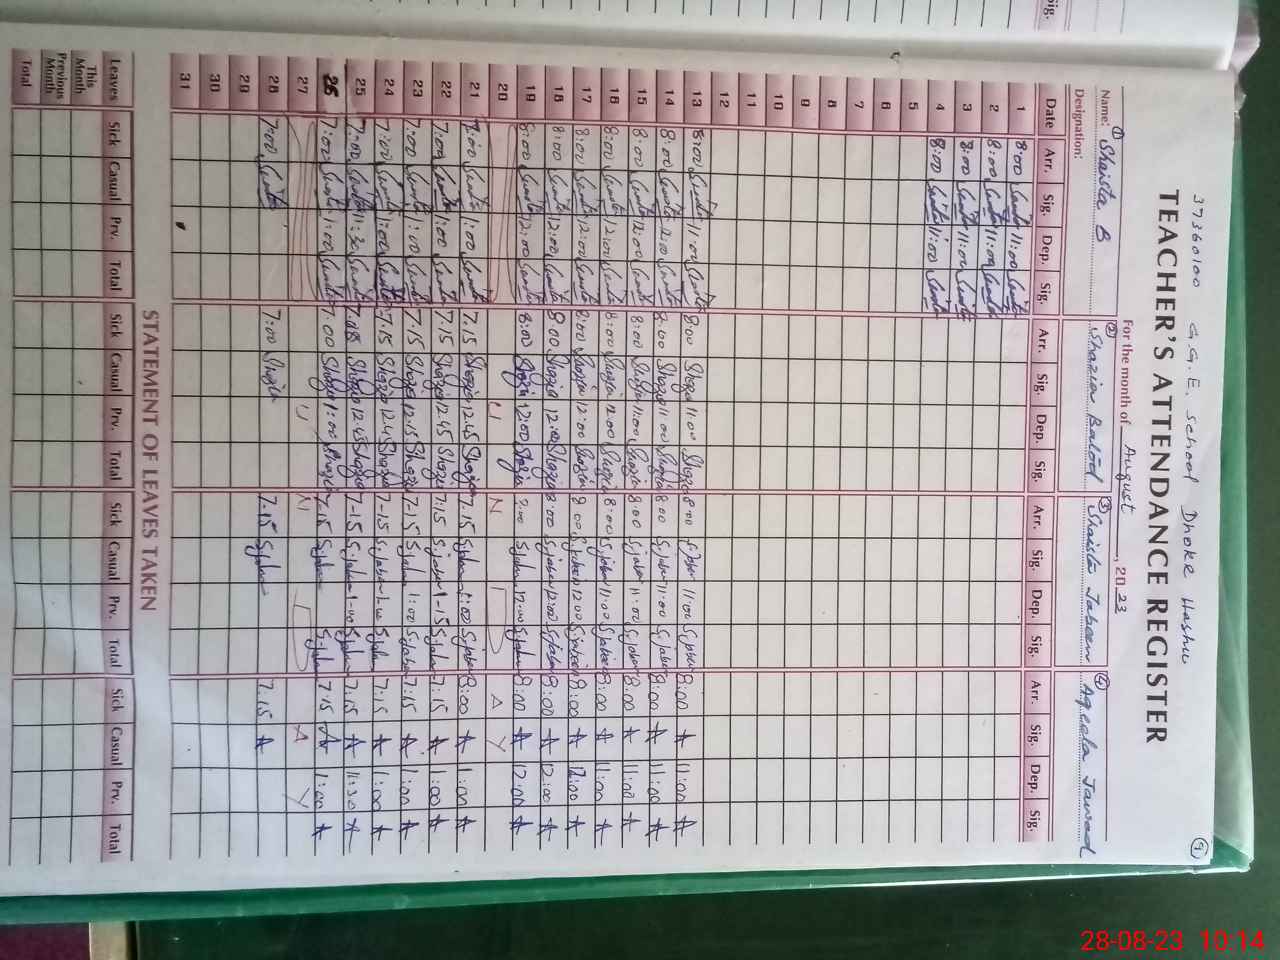 37360100 G.G.E. School Dhoke Hashu 9
TEACHER'S ATTENDANCE REGISTER
For the month of August, 2023
Name: ① Shaista B ② Shazia Batool ③ Shaista Jabeen ④ Aqeela Jawad
Designation:
Date Arr. Sig. Dep. Sig. Arr. Sig. Dep. Sig. Arr. Sig. Dep. Sig. Arr. Sig. Dep. Sig.
1 8:00 11:00
2 8:00 11:00
3 8:00 11:00
4 8:00 11:00
5
6
7
8
9
10
11
12
13 8:00 11:00 8:00 Shazia 11:00 Shazia 8:00 S.jaben 11:00 S.jaben 8:00 11:00
14 8:00 12:00 8:00 Shazia 11:00 Shazia 8:00 S.jaben 11:00 S.jaben 8:00 11:00
15 8:00 12:00 8:00 Shazia 11:00 Shazia 8:00 S.jaben 11:00 S.jaben 8:00 11:00
16 8:00 12:00 8:00 Shazia 12:00 Shazia 8:00 S.jaben 11:00 S.jaben 8:00 11:00
17 8:00 12:00 8:00 Shazia 12:00 Shazia 8:00 S.jaben 12:00 S.jaben 8:00 12:00
18 8:00 12:00 8:00 Shazia 12:00 Shazia 8:00 S.jaben 12:00 S.jaben 8:00 12:00
19 8:00 12:00 8:00 Shazia 12:00 Shazia S.jaben 12:00 S.jaben 8:00 12:00
20 S U N D A Y
21 7:00 1:00 7.15 Shazia 12.45 Shazia 7.15 S.jaben 1:00 S.jaben 8:00 1:00
22 7:00 1:00 7.15 Shazia 12.45 Shazia 7:15 S.jaben 1-15 S.jaben 7:15 1:00
23 7:00 1:00 7.15 Shazia 12.15 Shazia 7-15 S.jaben 1:00 S.jaben 7:15 1:00
24 7:00 1:00 7.15 Shazia 12.45 Shazia 7-15 S.jaben S.jaben 7:15 1:00
25 7:00 11:30 Shazia 12.45 Shazia 7-15 S.jaben S.jaben 7:15 11:30
26 7:00 1:00 7.00 Shazia 1:00 Shazia 7.15 S.jaben S.jaben 7:15 1:00
27 S U N D A Y
28 7:00 7:00 Shazia 7.15 S.jaben 7.15
29
30
31
STATEMENT OF LEAVES TAKEN
Leaves Sick Casual Prv. Total Sick Casual Prv. Total Sick Casual Prv. Total Sick Casual Prv. Total
This Month
Previous Month
Total
Sig.
28-08-23 10:14